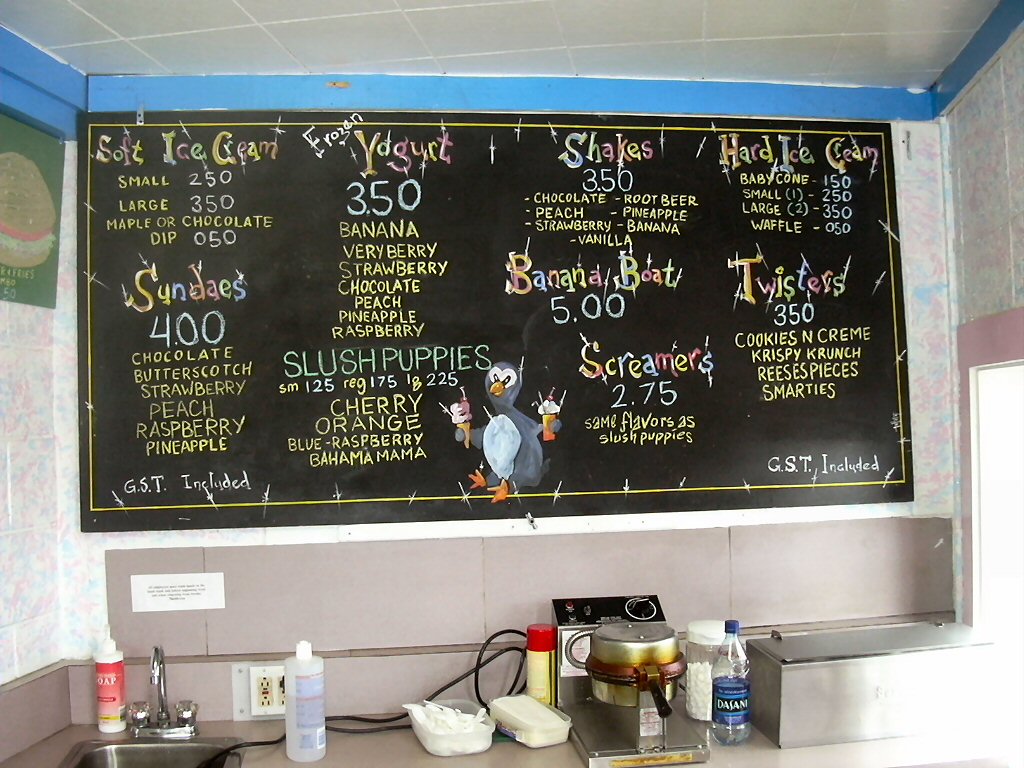 Soft Ice Cream
SMALL 250
LARGE 350
MAPLE OR CHOCOLATE
DIP 050
Sundaes
4.00
CHOCOLATE
BUTTERSCOTCH
STRAWBERRY
PEACH
RASPBERRY
PINEAPPLE
G.S.T. Included
Frozen
Yogurt
3.50
BANANA
VERY BERRY
STRAWBERRY
CHOCOLATE
PEACH
PINEAPPLE
RASPBERRY
SLUSH PUPPIES
sm 125 reg 175 lg 225
CHERRY
ORANGE
BLUE-RASPBERRY
BAHAMA MAMA
Shakes
3.50
- CHOCOLATE - ROOT BEER
- PEACH - PINEAPPLE
- STRAWBERRY - BANANA
- VANILLA
Banana Boat
5.00
Screamers
2.75
same flavors as
slush puppies
Hard Ice Cream
BABY CONE - 150
SMALL (1) - 250
LARGE (2) - 350
WAFFLE - 050
Twisters
350
COOKIES N CREME
KRISPY KRUNCH
REESES PIECES
SMARTIES
G.S.T. Included
OAP
DASANI